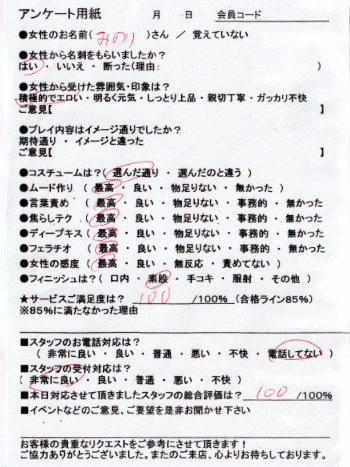 アンケート用紙 月 日 会員コード
●女性のお名前(みのり)さん / 覚えていない
●女性から名刺をもらいましたか?
はい・いいえ・断った(理由: )
●女性から受けた雰囲気・印象は?
積極的でエロい・明るく元気・しっとり上品・親切丁寧・ガッカリ不快
ご意見【 】
●プレイ内容はイメージ通りでしたか?
期待通り・イメージと違った
ご意見【 】
●コスチュームは?(選んだ通り・選んだのと違う)
●ムード作り(最高・良い・物足りない・無かった)
●言葉責め(最高・良い・物足りない・事務的・無かった
●焦らしテク(最高・良い・物足りない・事務的・無かった
●ディープキス(最高・良い・物足りない・事務的・無かった
●フェラチオ(最高・良い・物足りない・事務的・無かった
●女性の感度(最高・良い・無反応・責めてない)
●フィニッシュは?(口内・素股・手コキ・服射・その他)
★サービスご満足度は? 100 /100% (合格ライン85%)
※85%に満たなかった理由
■スタッフのお電話対応は?
(非常に良い・良い・普通・悪い・不快・電話してない)
■スタッフの受付対応は?
(非常に良い・良い・普通・悪い・不快)
■本日対応させて頂きましたスタッフの総合評価は? 100 /100%
■イベントなどのご意見、ご要望を是非お聞かせ下さい
お客様の貴重なリクエストをご参考にさせて頂きます!
ご協力ありがとうございました。またのご来店、心よりお待ちしております。